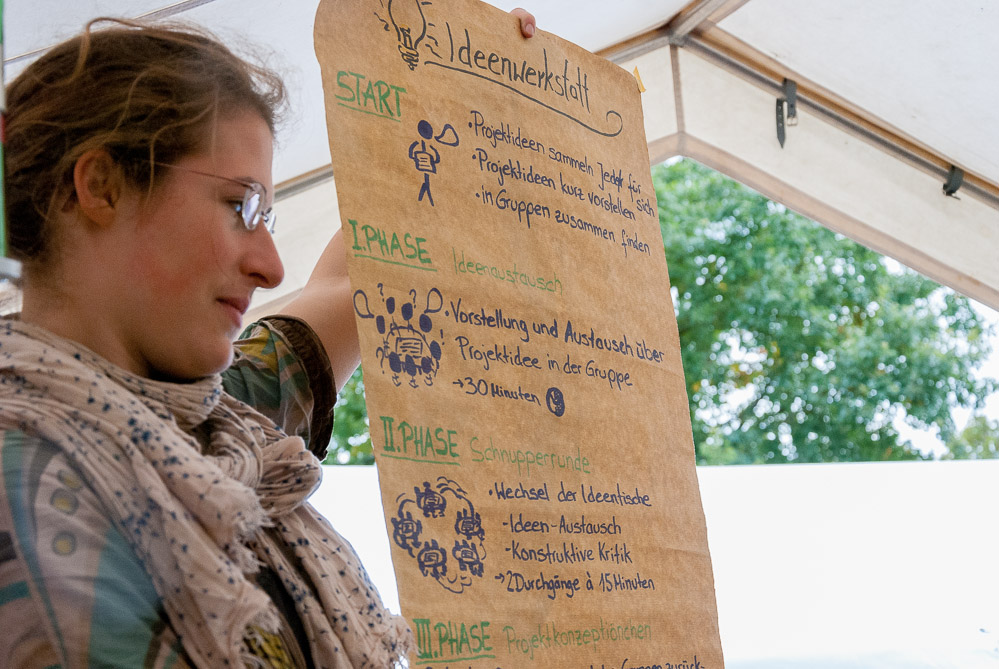 Ideenwerkstatt
START
• Projektideen sammeln Jeder für sich
• Projektideen kurz vorstellen
• in Gruppen zusammen finden
I. PHASE Ideenaustausch
• Vorstellung und Austausch über
Projektidee in der Gruppe
→ 30 Minuten
II. PHASE Schnupperrunde
• Wechsel der Ideentische
- Ideen-Austausch
- Konstruktive Kritik
→ 2 Durchgänge à 15 Minuten
III. PHASE Projektkonzeptiönchen
Gruppen zurück-